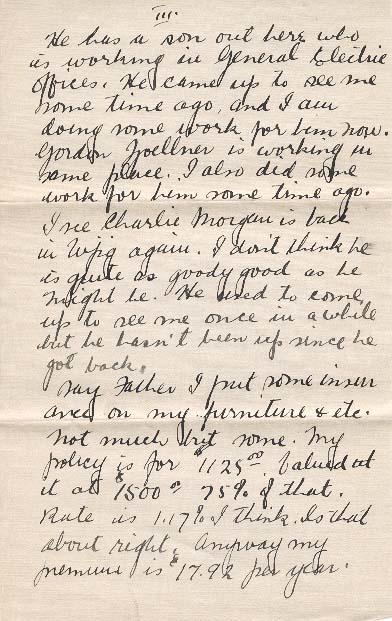 III.
He has a son out here who
is working in General Electric
offices. He came up to see me
some time ago, and I am
doing some work for him now.
Gordon Zoellner is working in
same place. I also did some
work for him some time ago.
I see Charlie Morgan is back
in Wpg again. I don't think he
is quite as goody good as he
might be. He used to come
up to see me once in a while
but he hasn't been up since he
got back.
Say Father I put some insur
ance on my furniture & etc.
Not much but some. My
policy is for $1125.00. Valued at
it at $1500.00 75% of that.
Rate is 1.17% I think. Is that
about right. Anyway my
premium is $17.92 per year.